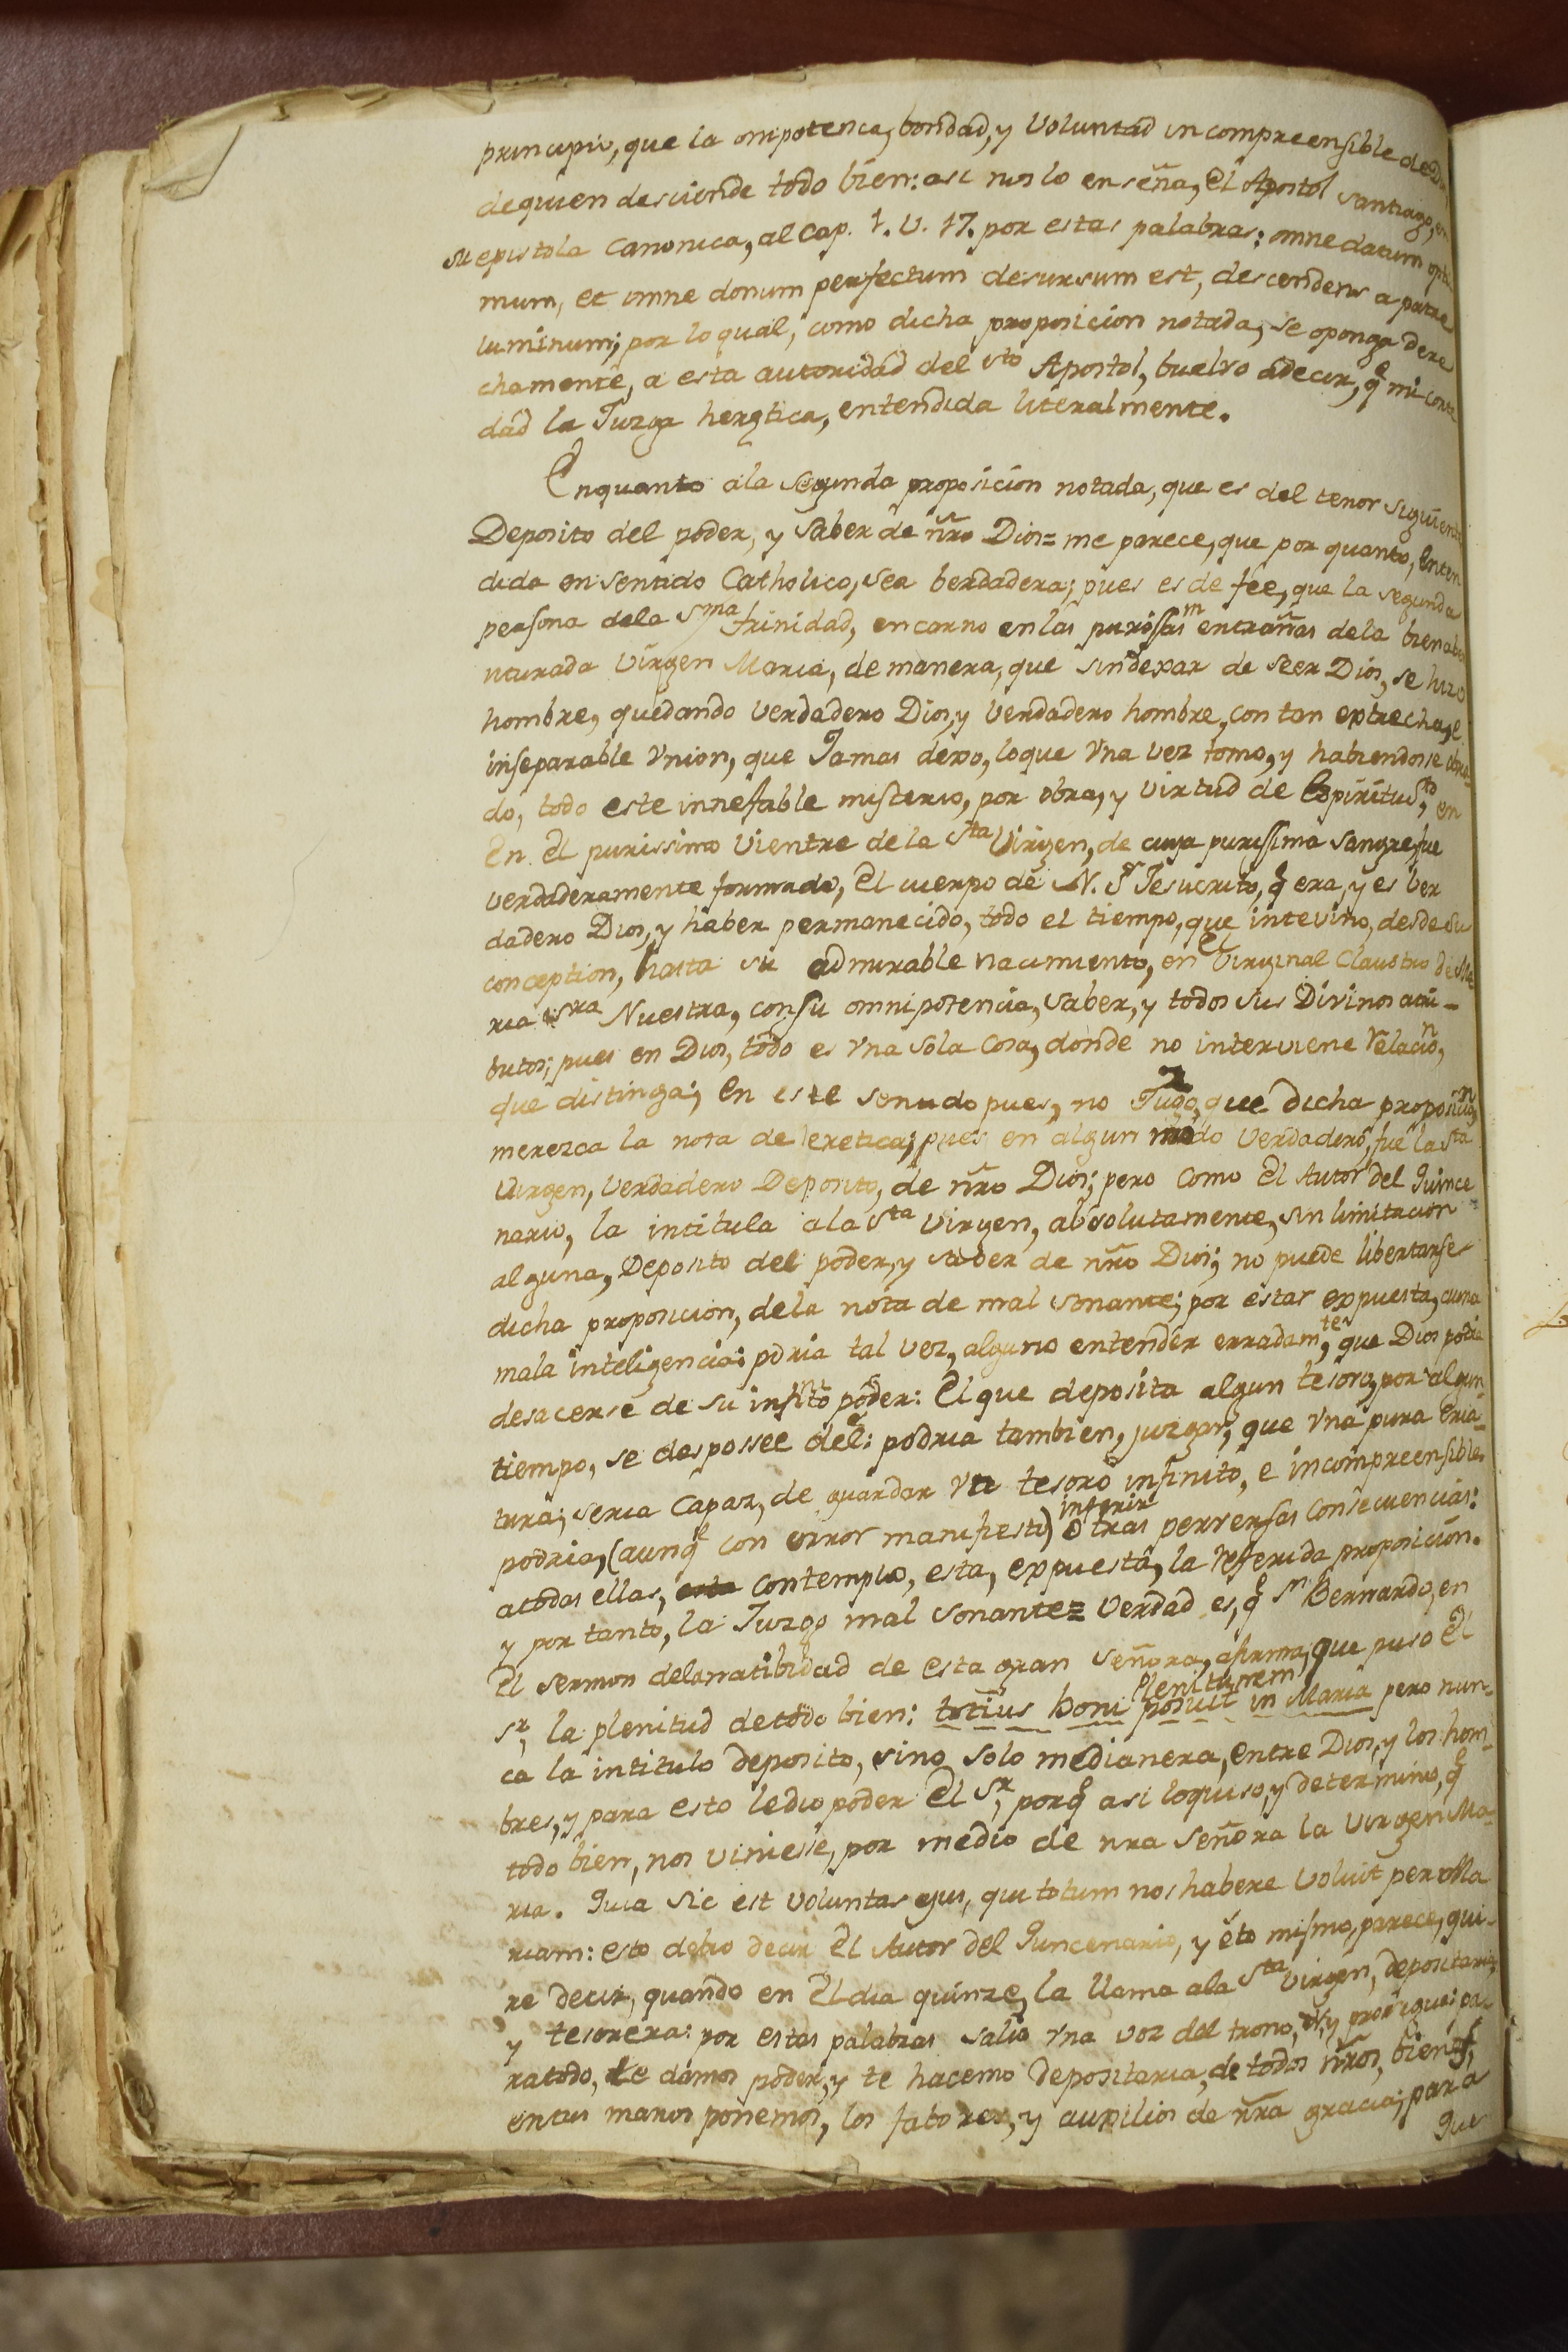 principio, que la omipotenca, bondad, y Voluntad incompreensible de Dios,
de quien desciende todo bien: asi nos lo enseña, el Apostol Santiago, en
su epistola Canonica, al Cap. 1. V. 17. por estas palabras: omne datum opti
mum, et omne donum perfectum desursum est, descendens a patre
luminum; por lo qual, como dicha proposicion notada, se oponga dere
chamente, a esta autoridad del sto Apostol, buelvo a decir, q̃ mi corte
dad la Juzga heretica, entendida literalmente.
Enquanto ala segunda proposicion notada, que es del tenor siguiente
Deposito del poder, y Saber de ñro Dios= me parece, que por quanto, enten
dida en sentido Catholico, sea berdadera; pues es de fee, que la segunda
persona dela Sma trinidad, encarno en las purissas m entrañas dela bienabe
nturada Virgen Maria, de manera, que sin dexar de seer Dios, se hizo
hombre, quedando Verdadero Dios, y Verdadero hombre, con tan extrecha, e
inseparable Vnion, que Jamas dexo, loque Vna vez tomo, y habiendosse obra-
do, todo este innefable misterio, por obra, y virtud de Espiritu Sto, en
En el purissimo Vientre de la Sta Virgen, de cuya purissima sangre, fue
verdaderamente formado, El cuerpo de N. Sr Jesucrito, q̃ era, y es ver
dadero Dios, y haber permanecido, todo el tiempo, que intevino, desde su
conception, hasta su admirable nacimiento, en el Virginal Claustro de Ma
ria sra Nuestra, con su omnipotencia, Saber, y todos sus Divinos atri-
butos; pues en Dios, todo es Vna sola Cosa, donde no interviene relacion,
que distinga; en este sentido pues, no Jugo, z que dicha proposicion
merezca la nota de heretica; pues en algun modo Verdadero, fue la Sta
Virgen, Verdadero Deposito, de ñro Dios; pero como El Autor del Quince-
nario, la intitula ala Sta Virgen, absolutamente, sin limitacion
alguna, Deposito del poder, y saber de nr̃o Dios; no puede libertarse
dicha proposicion, dela nota de mal sonante; por estar expuesta, a una
mala inteligencia: pdria tal vez, alguno entender erradamte, que Dios podia
desacerse de su infinito poder: El que deposita algun tesoro, por algun
tiempo, se desposee del: podria tambien, juzgar, que Vna pura Cria-
tura; seria Capaz, de guardar Vn tesoro infinito, e incompreensible
podria, (aunq̃ con error manifiesto) inferir otras perversas Consecuencias:
atodas ellas, esta contemplo, esta, expuesta, la referida proposicion.
y por tanto, la Juzgo mal sonante= Verdad es, q̃ Sn Bernardo, en
El sermon dela natibidad de esta gran señora, afirma, que puso El
Sr, la plenitud detodo bien: totius boni plenitutem posuit in Maria pero nun-
ca la intitulo deposito, sino solo medianera, entre Dios, y los hom-
bres, y para esto ledio poder El Sr, porq̃ asi loquiso, y determino, q̃
todo bien, nos viniesse, por medio de nra Señora la Virgen Ma-
ria. Quia sic est voluntas ejus, qui totum nos habere voluit per Ma
riam: esto debio decir El Autor del Quncenario, y ẽto mismo, parece, qui-
re decir, quando en El dia quinze, la llama ala Sta Virgen, depositaria,
y tesorera: por estas palabras salio Vna voz del trono, y prosigue: pa-
ratodo, te damos poder, y te hacemo Depositaria, de todos ñros, bienes,
entus manos ponemos, los fabores, y auxilios de ñra gracia; para
que